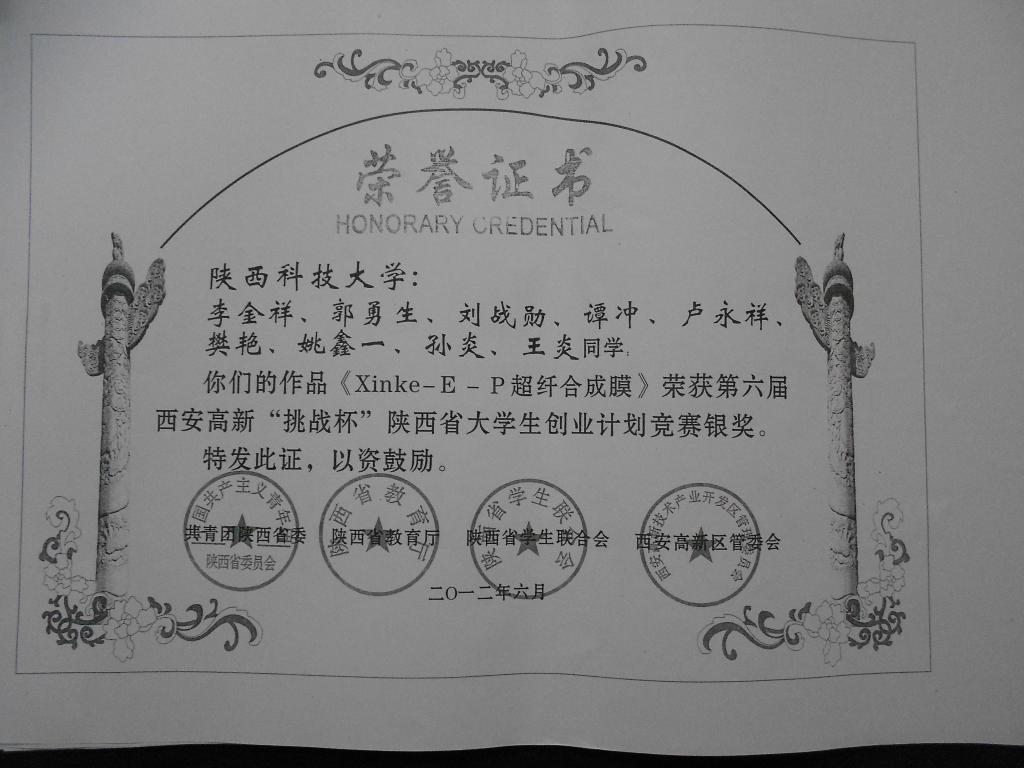 荣誉证书
HONORARY CREDENTIAL
陕西科技大学：
李金祥、郭勇生、刘战勋、谭冲、卢永祥、
樊艳、姚鑫一、孙炎、王炎同学：
你们的作品《Xinke-E-P超纤合成膜》荣获第六届
西安高新“挑战杯”陕西省大学生创业计划竞赛银奖。
特发此证，以资鼓励。
共青团陕西省委 陕西省教育厅 陕西省学生联合会 西安高新区管委会
陕西省委员会
陕西省教育厅
陕西省学生联合会
二〇一二年六月